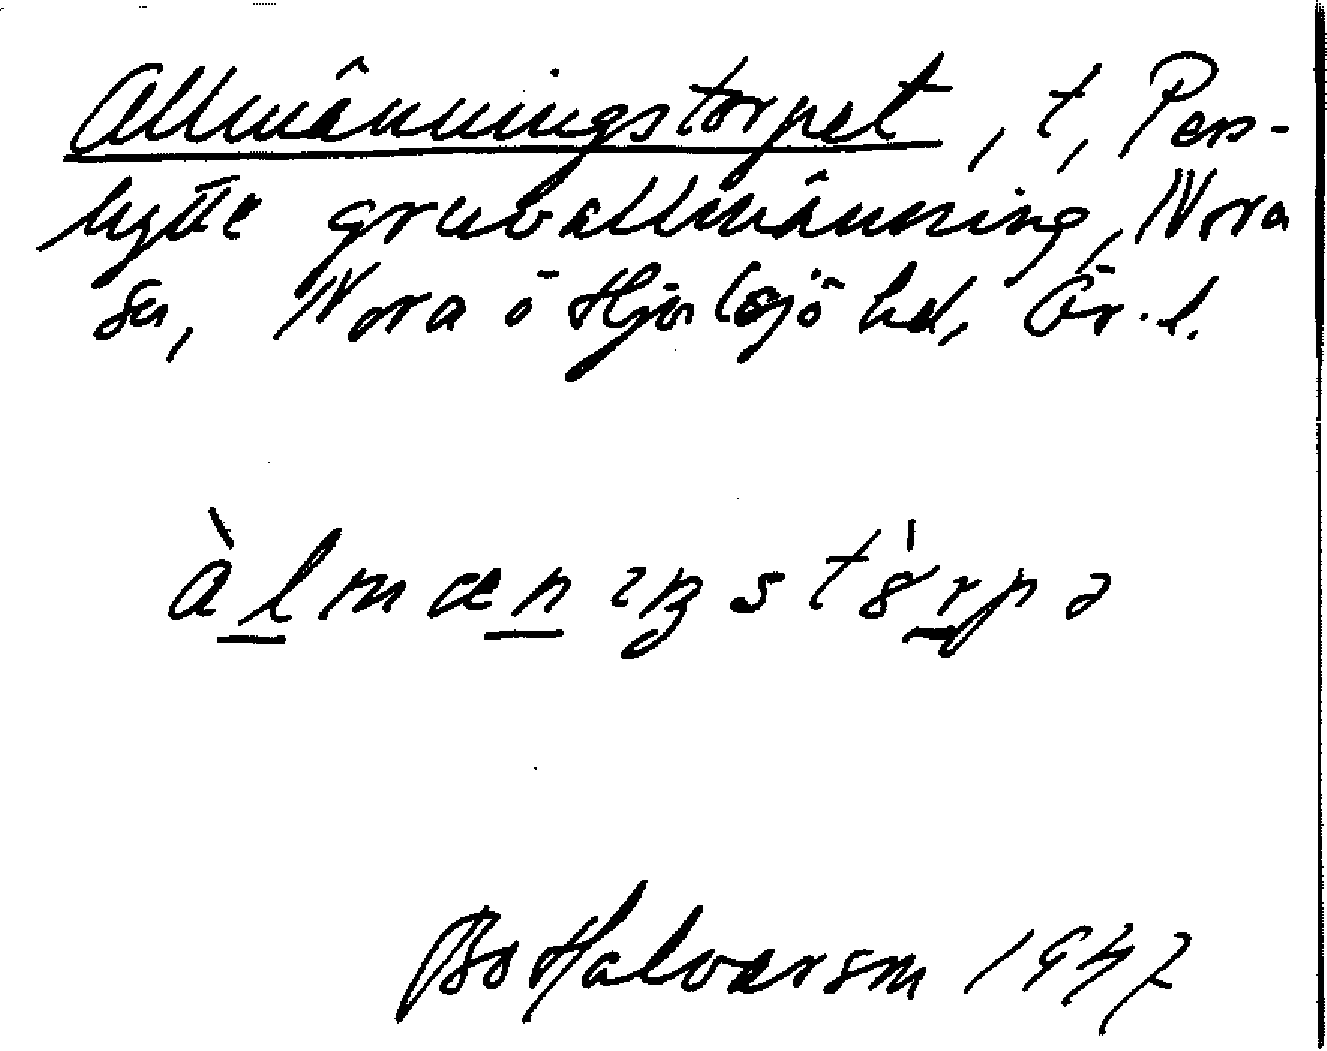 Allmänningstorpet, t, Pers-
hytte gruvallmänning, Nora
sn, Nora o Hjulsjö hd, Ör. l.
àlmænıŋstɔ́rpə
Bo Halvarson 1947